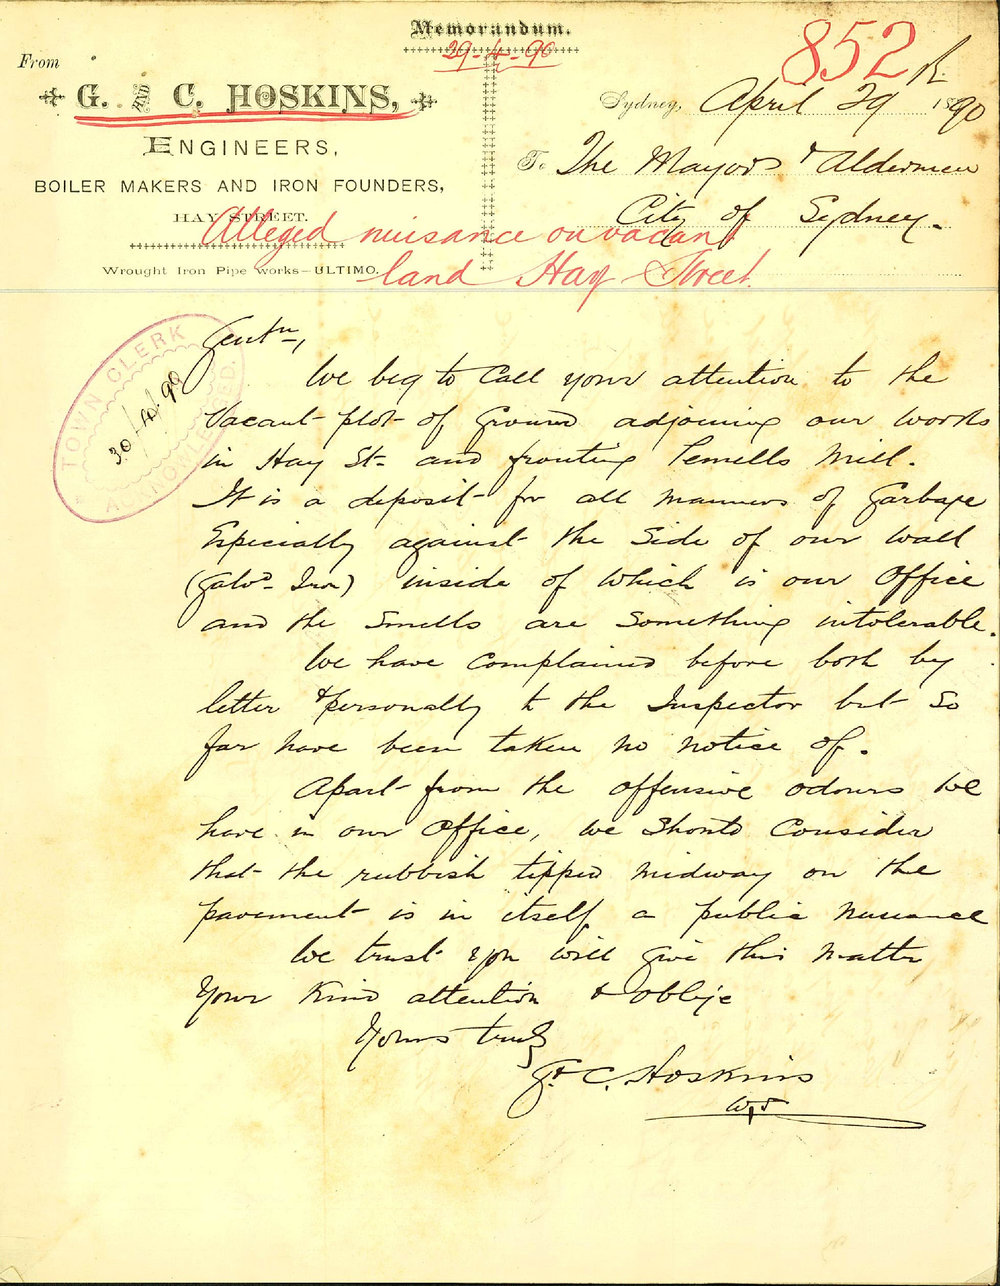 Memorandum.
29-4-90
852
From
G. AND C. HOSKINS,
ENGINEERS,
BOILER MAKERS AND IRON FOUNDERS,
HAY STREET.
Wrought Iron Pipe works—ULTIMO.
Sydney, April 29 1890
To The Mayor & Aldermen
City of Sydney.
Alleged nuisance on vacant
land Hay Street
TOWN CLERK
30/4/90
ACKNOWLEDGED.
Gentn,
We beg to call your attention to the
Vacant plot of Ground adjoining our works
in Hay St. and fronting Pemells Mill.
It is a deposit for all manners of Garbage
Especially against the Side of our wall
(Galvd Iron) inside of which is our Office
and the Smells are Something intolerable.
We have Complained before both by
letter & personally to the Inspector but So
far have been taken no notice of.
Apart from the offensive odours we
have in our Office, we Should Consider
that the rubbish tipped midway on the
pavement is in itself a public Nusance
We trust you will give this matter
Your Kind attention & oblige
Yours truly
G & C. Hoskins